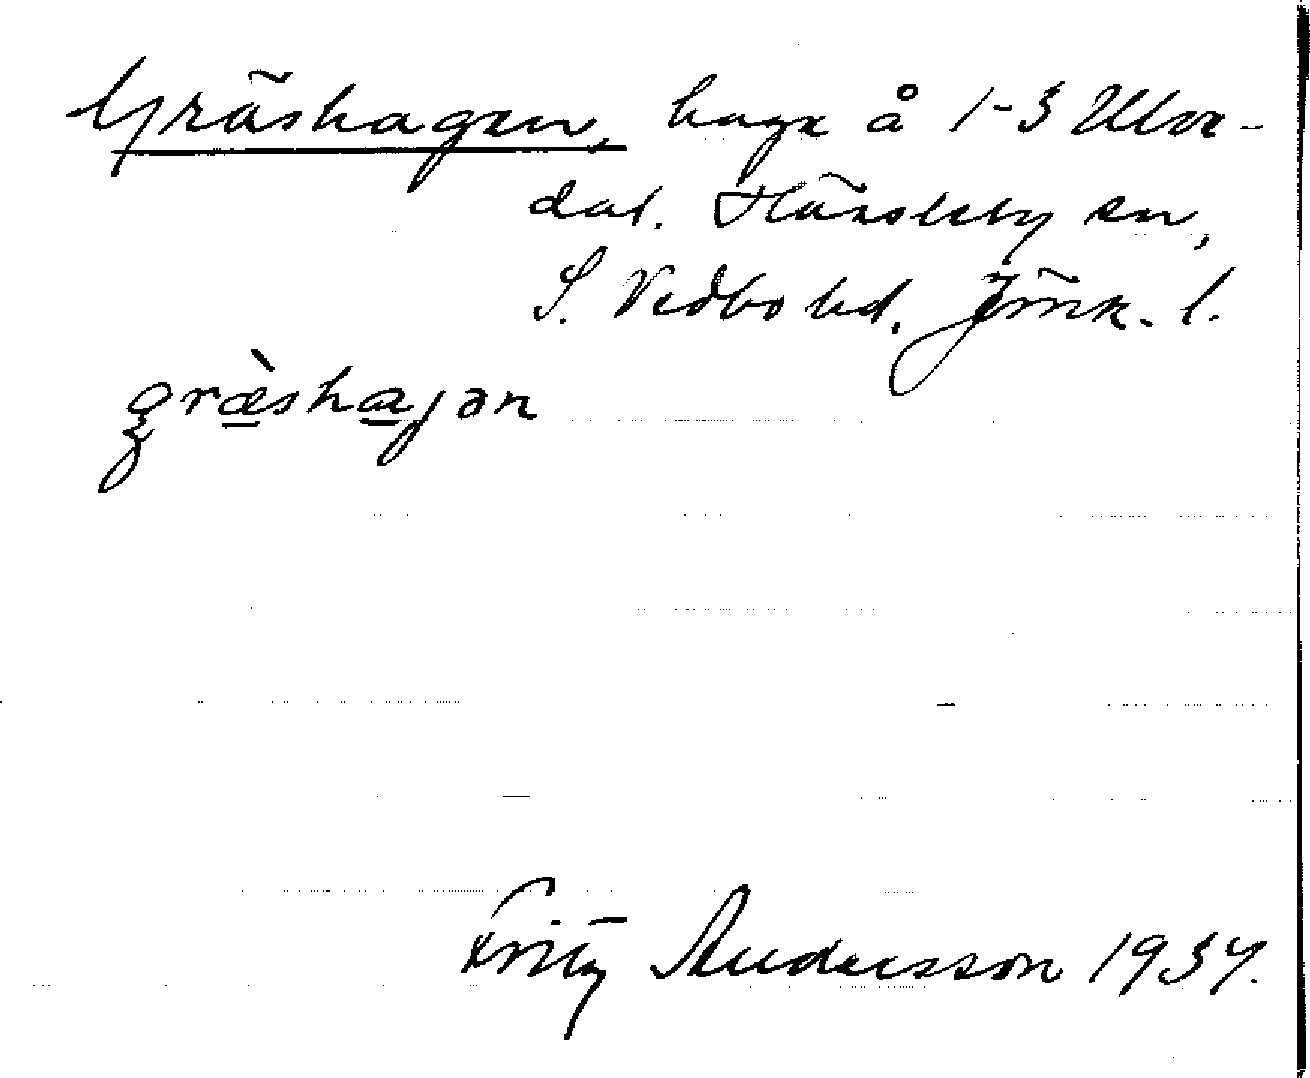 Gräshagen, hage å 1-3 Ulva-
dal. Hässleby sn,
S. Vedbo hd. Jönk. l.
græ̀shaɡjən
Fritz Andersson 1934.